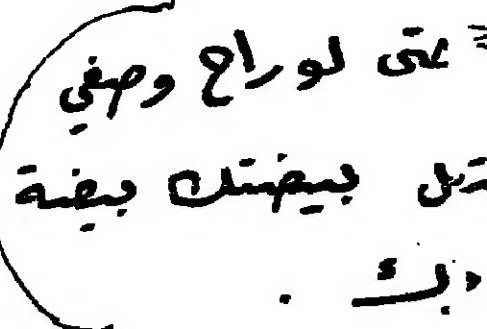 حتى لو راح وصفي
تل بيضتك بيضة
ديك .